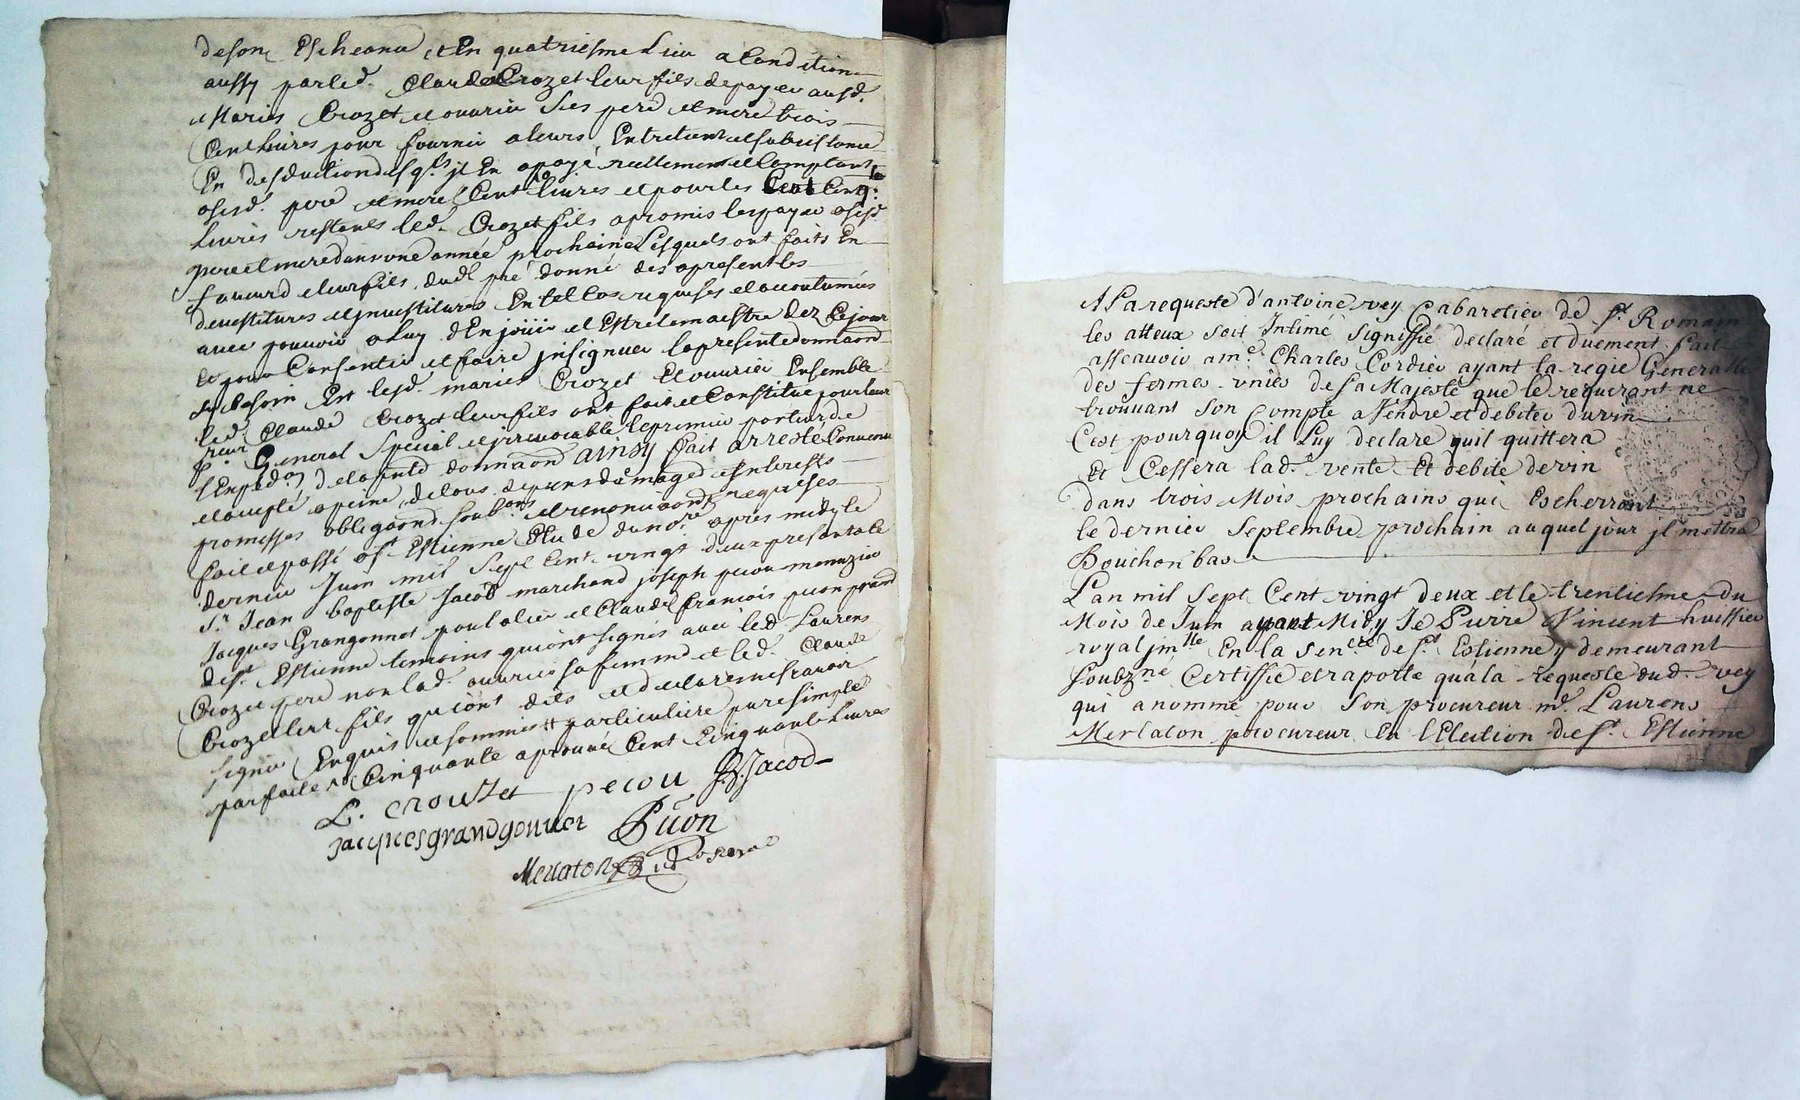 deson Escheance et En quatriesme Lieu a Condition
aussy parled. Claude Crozet leur fils depayer ausd.
Mariés Crozet et ouvrier Ses pere et mere trois
Cent Livres pour fournir a leurs Entretient et subsistance
En desduction desq.ls jl En apayé reellement et Comptant
asesd. pere et mere Cent livres et pour les Cent Cinq.te
Livres restantes led. Crozet fils apromis les payer asesd.
pere et mere dans une année prochaine Lesquels ont faits En
faveur d eleur fils dud. pré donné des apresent les
devestitures et jnvestitures En tel Cas requises et accoutumées
avec pouvoir aLuy dEn jouir et Estre le maestre dez Cejour
Et pour Consentir et faire jnsignuer la presente donnaon
sy besoin Est lesd. mariés Crozet et ouvrier Ensemble
led. Claude Crozet leur fils ont fait et Constitué pour leur
p.reur General Special et jrrevocable le premier porteur de
lExpédon delapnte donnaon ainsy fait arresté Convenu
et accepté apeine detous depens domage et Interests
promesses obligaons soub.ons et renonciaons requises
fait et passé a S.t Estienne Etude du no.re après midy le
dernier Juin mil Sept Cent vingt deux presents le
S.r Jean baptiste Jacod marchand joseph pecou menuzier
Jacques Grangonnet poulalier et Claude francois puon grand
de S.t Estienne temoins qui ont signés avec led. Laurens
Crozet pere non lad. ouvrier sa femme et led. Claude
Crozet leur fils qui ont dits et declarés ne scavoir
signer Enquis et sommés # particuliere pure simple
parfaite Cinquante aprouvé Cent Cinquante Livres
L. crouzet pecou J.B. Jacod
Jacques grandgonnet Puon
Merlaton
A Larequeste d'antoine vey Cabaretier de S.t Romain
les atteux soit Intimé Signiffié declaré et duement fait
assçauvoir a m.e Charles Cordier ayant la regie Generalle
des fermes unies de Sa Majesté que le requerant ne
trouvant Son Compte a Vendre et debiter du vin
C'est pourquoy il Luy declare quil quittera
Et Cessera lad. vente Et debite de vin
dans trois Mois prochains qui Escherront
le dernier Septembre prochain auquel jour jl mettra
Bouchon bas
L'an mil Sept Cent vingt deux et le trentiesme du
Mois de Juin avant Midy Je Pierre Vincent huissier
royal jm.lle En la Sen.cée de S.t Estienne y demeurant
Soubz.né Certiffie et raporte qu'à la requeste dud. vey
qui a nommé pour Son procureur m.e Laurens
Merlaton procureur En l'Election de S.t Estienne